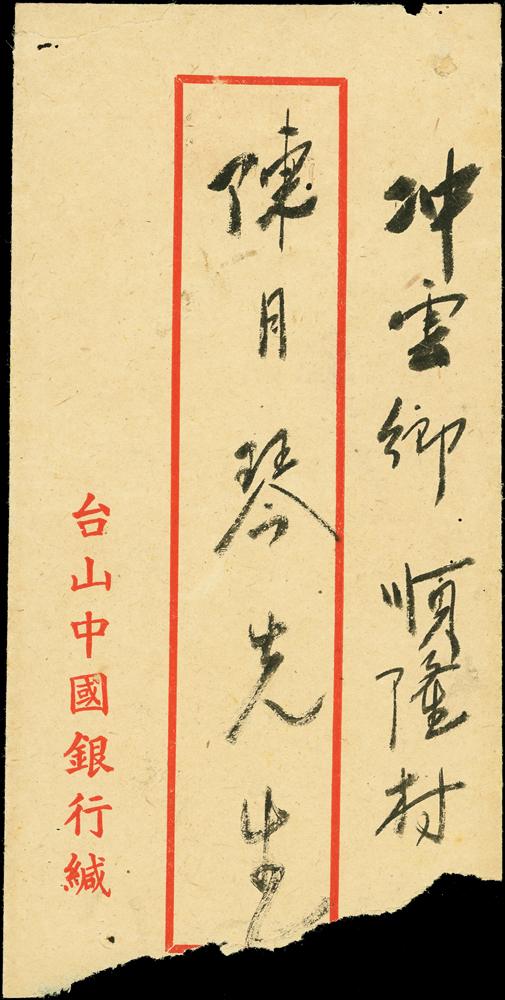 冲雲鄉順隆村
陳月琴先生
台山中國銀行緘